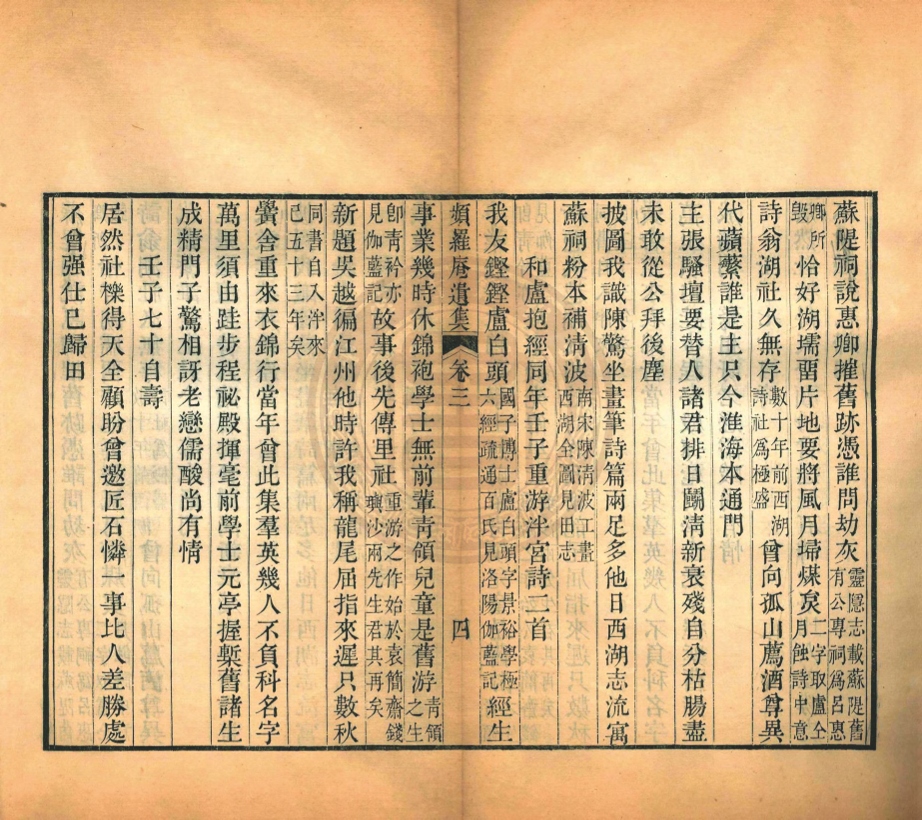 蘇隄祠說惠卿摧舊跡憑誰問劫灰靈隱志載蘇隄舊有公專祠爲呂惠
卿所毀恰好湖壖畱片地要將風月埽煤炱二字取盧仝月蝕詩中意
詩翁湖社久無存數十年前西湖詩社爲極盛曾向孤山薦酒尊異
代蘋蘩誰是主只今淮海本通門
主張騷壇要替人諸君排日鬬淸新衰殘自分枯腸盡
未敢從公拜後塵
披圖我識陳驚坐畫筆詩篇兩足多他日西湖志流寓
蘇祠粉本補淸波南宋陳淸波工畫西湖全圖見田志
和盧抱經同年壬子重游泮宮詩二首
我友鏗鏗盧白頭國子博士盧白頭字景裕學極六經疏通百氏見洛陽伽藍記經生
頻羅庵遺集 卷三 四
事業幾時休錦袍學士無前輩靑領兒童是舊游靑領之生
卽靑衿亦見伽藍記故事後先傳里社重游之作始於袁簡齋錢璵沙兩先生君其再矣
新題吳越徧江州他時許我稱龍尾屈指來遲只數秋
同書自入泮來已五十三年矣
黌舍重來衣錦行當年曾此集羣英幾人不負科名字
萬里須由跬步程祕殿揮毫前學士元亭握槧舊諸生
成精門子驚相訝老戀儒酸尚有情
壬子七十自壽
居然社櫟得天全顧盼曾邀匠石憐一事比人差勝處
不曾强仕已歸田